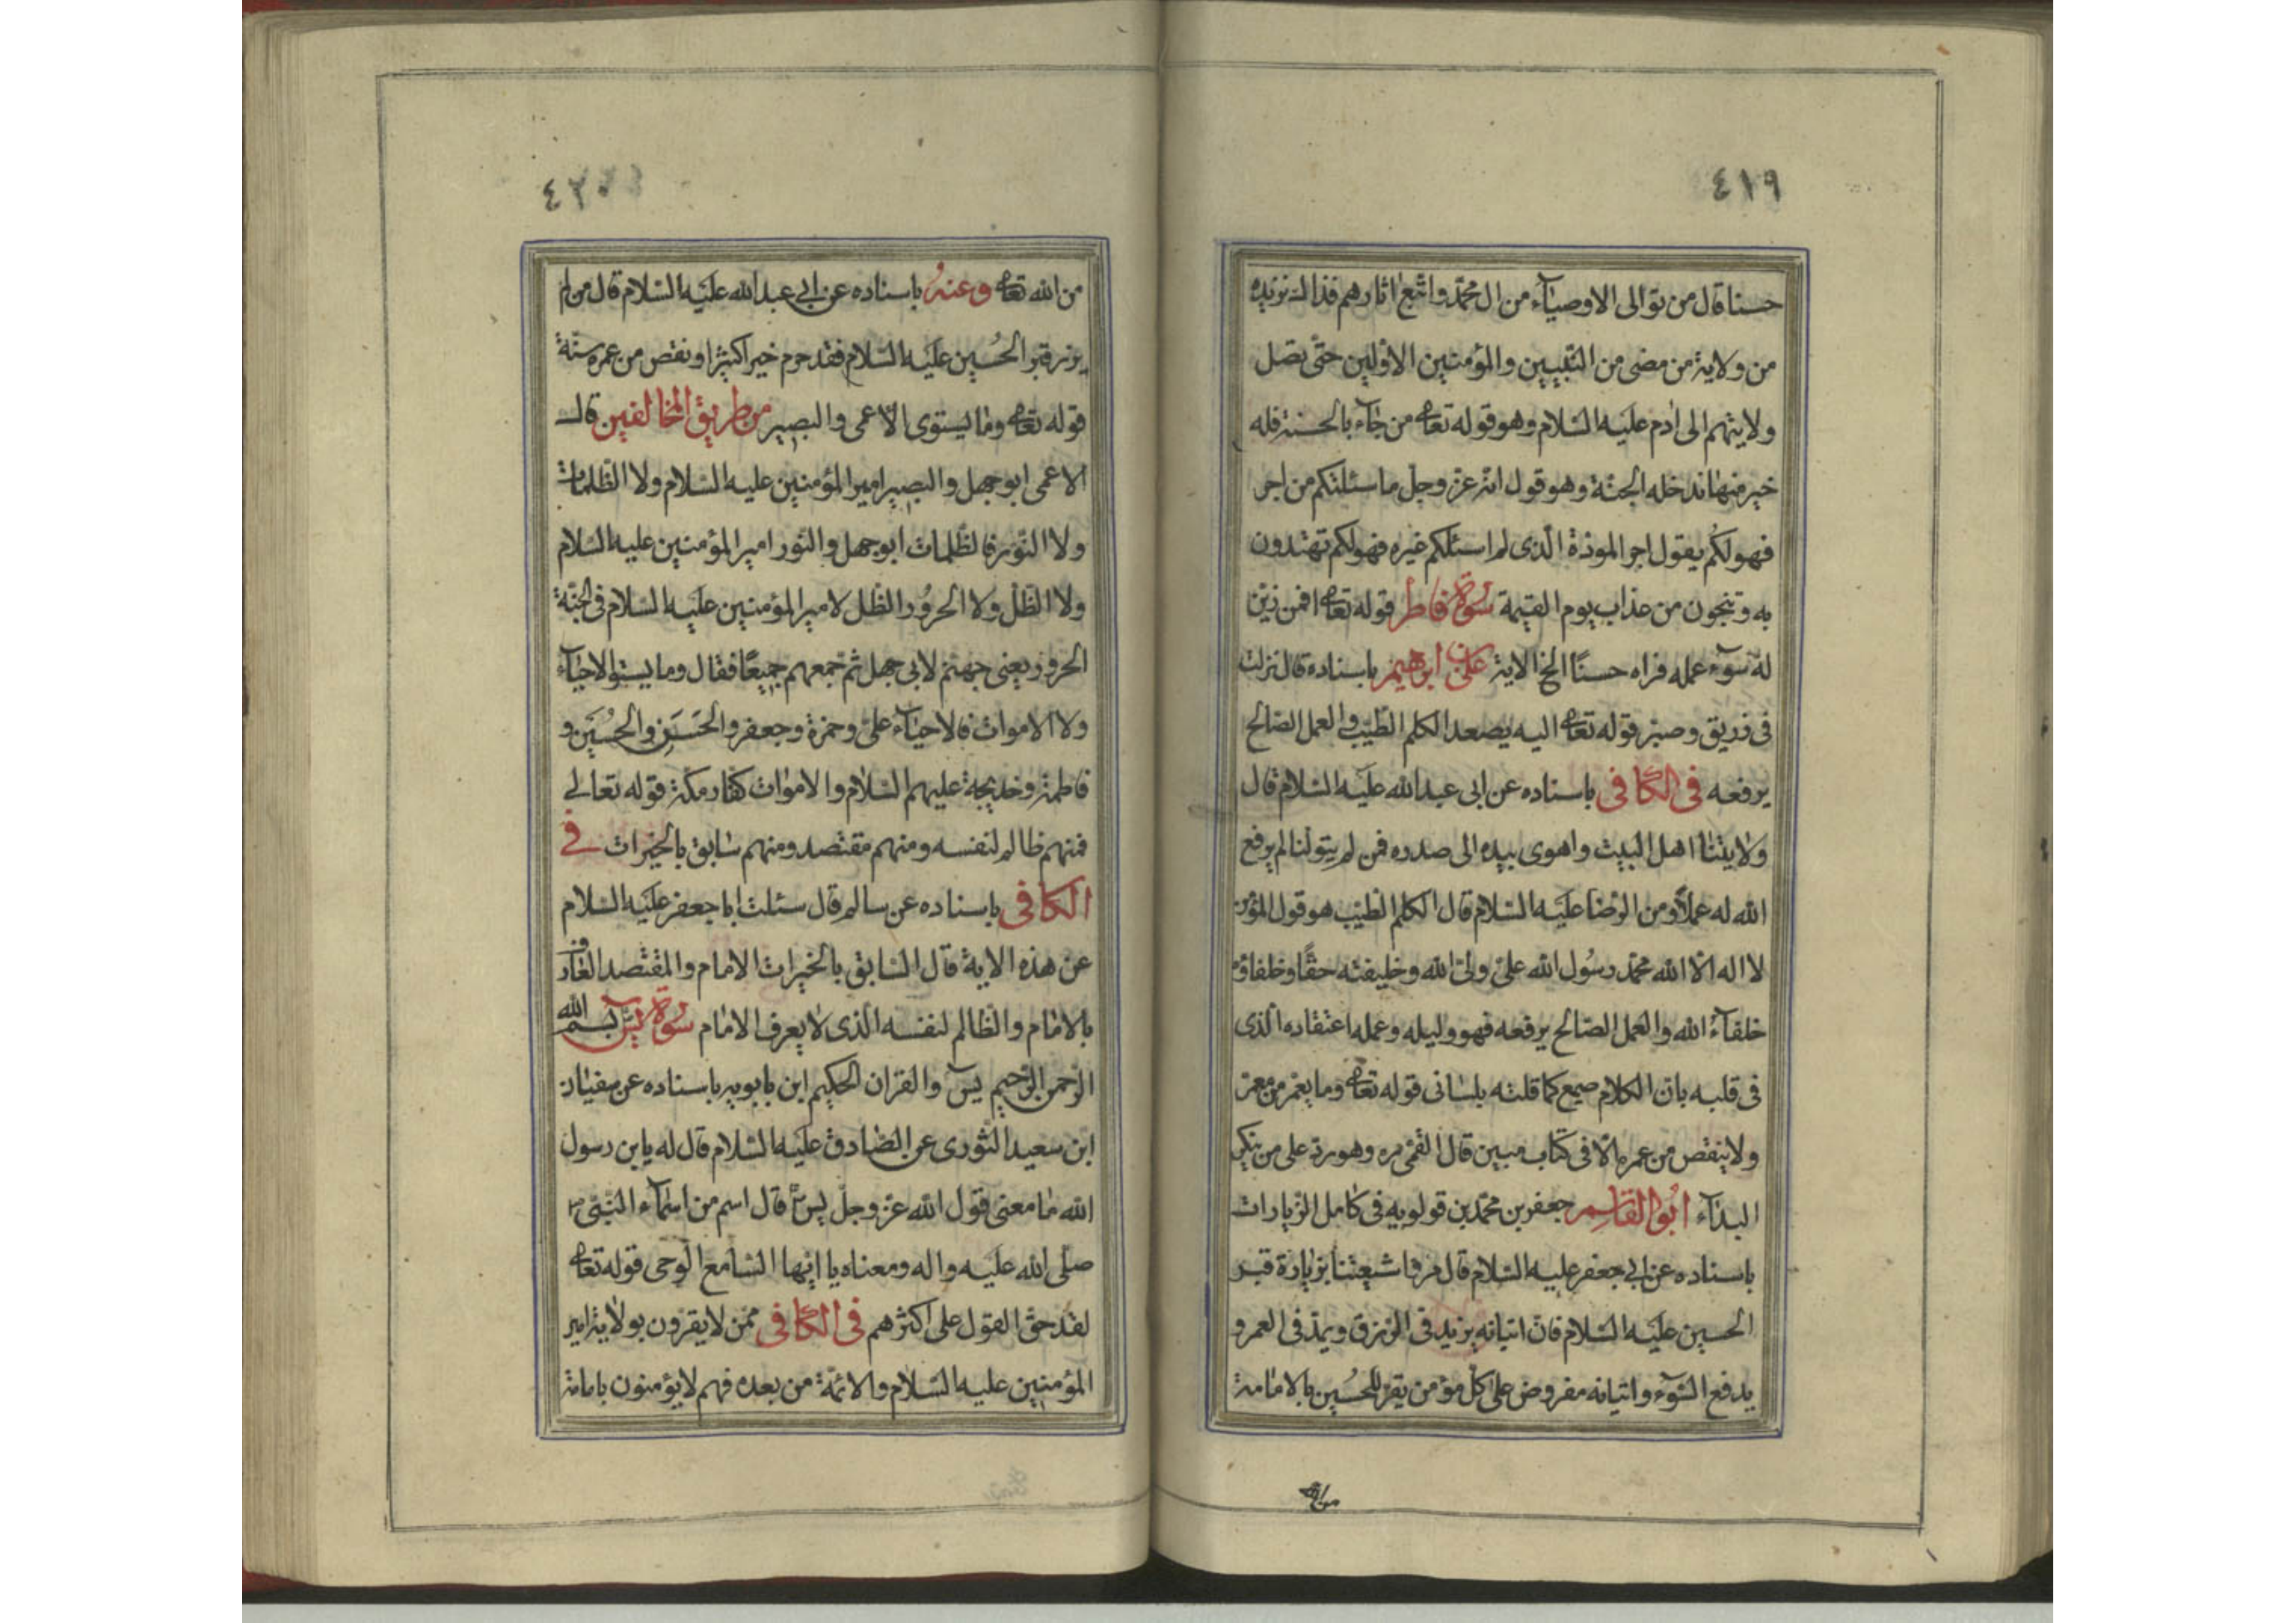 ٤١٩
حسنا قال من توالى الاوصيآء من ال محمّد واتّبع اثارهم فذاك نزيده
من ولاية من مضى من النّبيين والمؤمنين الاوّلين حتّى تصل
ولايتهم الى ادم عليه السّلام وهو قوله تعالى من جآء بالحسنة فله
خير منها ندخله الجنّة وهو قول الله عزّ وجلّ ما سئلتكم من اجر
فهو لكم يقول اجر المودّة الّذى لم اسئلكم غيره فهو لكم تهتدون
به وتنجون من عذاب يوم القيمة سورة فاطر قوله تعالى افمن زيّن
له سوٓء عمله فراه حسنًا الخ الاية علىّ بن ابرهيم باسناده قال نزلت
فى زريق وحبتر قوله تعالى اليه يصعد الكلم الطّيّب والعمل الصّالح
يرفعه فى الكافى باسناده عن ابى عبد الله عليه السّلام قال
ولايتنا اهل البيت واهوى بيده الى صدره فمن لم يتولّنا لم يرفع
الله له عملاً ومن الرّضا عليه السّلام قال الكلم الطّيّب هو قول المؤمن
لا اله الّا الله محمّد رسُول الله علىّ ولىّ الله وخليفته حقًّا وخلفاؤه
خلفآء الله والعمل الصّالح يرفعه فهو وليله وعمله اعتقاده الّذى
فى قلبه بانّ الكلام صحيح كما قلته بلسانى قوله تعالى وما يعمّر من معمّر
ولا ينقص من عمره الّا فى كتاب مبين قال القمّى ره وهو ردّ على من ينكر
البدآء ابو القاسم جعفر بن محمّد بن قولويه فى كامل الزّيارات
باسناده عن ابى جعفر عليه السّلام قال مروا شيعتنا بزيارة قبر
الحسين عليه السّلام فانّ اتيانه يزيد فى الرّزق ويمدّ فى العمر و
يدفع السّوٓء واتيانه مفروض على كلّ مؤمن يقرّ للحُسين بالامامة
من الله
٤٢٠
من الله تعالى وعنه باسناده عن ابى عبد الله عليه السّلام قال من لم
يزر قبر الحُسين عليه السّلام فقد حرم خيرا كثيرًا ونقص من عمره سنّة
قوله تعالى وما يستوى الاعمى والبصير من طريق المخالفين قال
الاعمى ابو جهل والبصير امير المؤمنين عليه السّلام ولا الظّلمات
ولا النّور فالظّلمات ابو جهل والنّور امير المؤمنين عليه السّلام
ولا الظّلّ ولا الحرُور الظّل لامير المؤمنين عليه السّلام فى الجنّة
الحرور يعنى جهنّم لابى جهل ثم جمعهم جميعًا فقال وما يستوالاحيآء
ولا الاموات فالاحيآء علىّ وحمزة وجعفر والحَسَن والحُسَين و
فاطمة وخديجة عليهم السّلام والاموات كفّار مكّة قوله تعالى
فمنهم ظالم لنفسه ومنهم مقتصد ومنهم سابق بالخيرات فى
الكافى باسناده عن سالم قال سئلت ابا جعفر عليه السّلام
عن هذه الاية قال السّابق بالخيرات الامام والمقتصد العارف
بالامام والظّالم لنفسه الّذى لا يعرف الامام سورة يسٓ بسم الله
الرّحمن الرّحيم يسٓ والقران الحكيم ابن بابويه باسناده عن سفيان
ابن سعيد الثّورى عن الصّادق عليه السّلام قال له يابن رسول
الله ما معنى قول الله عزّ وجلّ يسٓ قال اسم من اسمآء النّبىّ
صلّى الله عليه واله ومعناه يا ايّها السّامع الوحى قوله تعالى
لقد حقّ القول على اكثرهم فى الكافى ممّن لا يقرّون بولاية امير
المؤمنين عليه السّلام والائمّة من بعده فهم لا يؤمنون بامامة